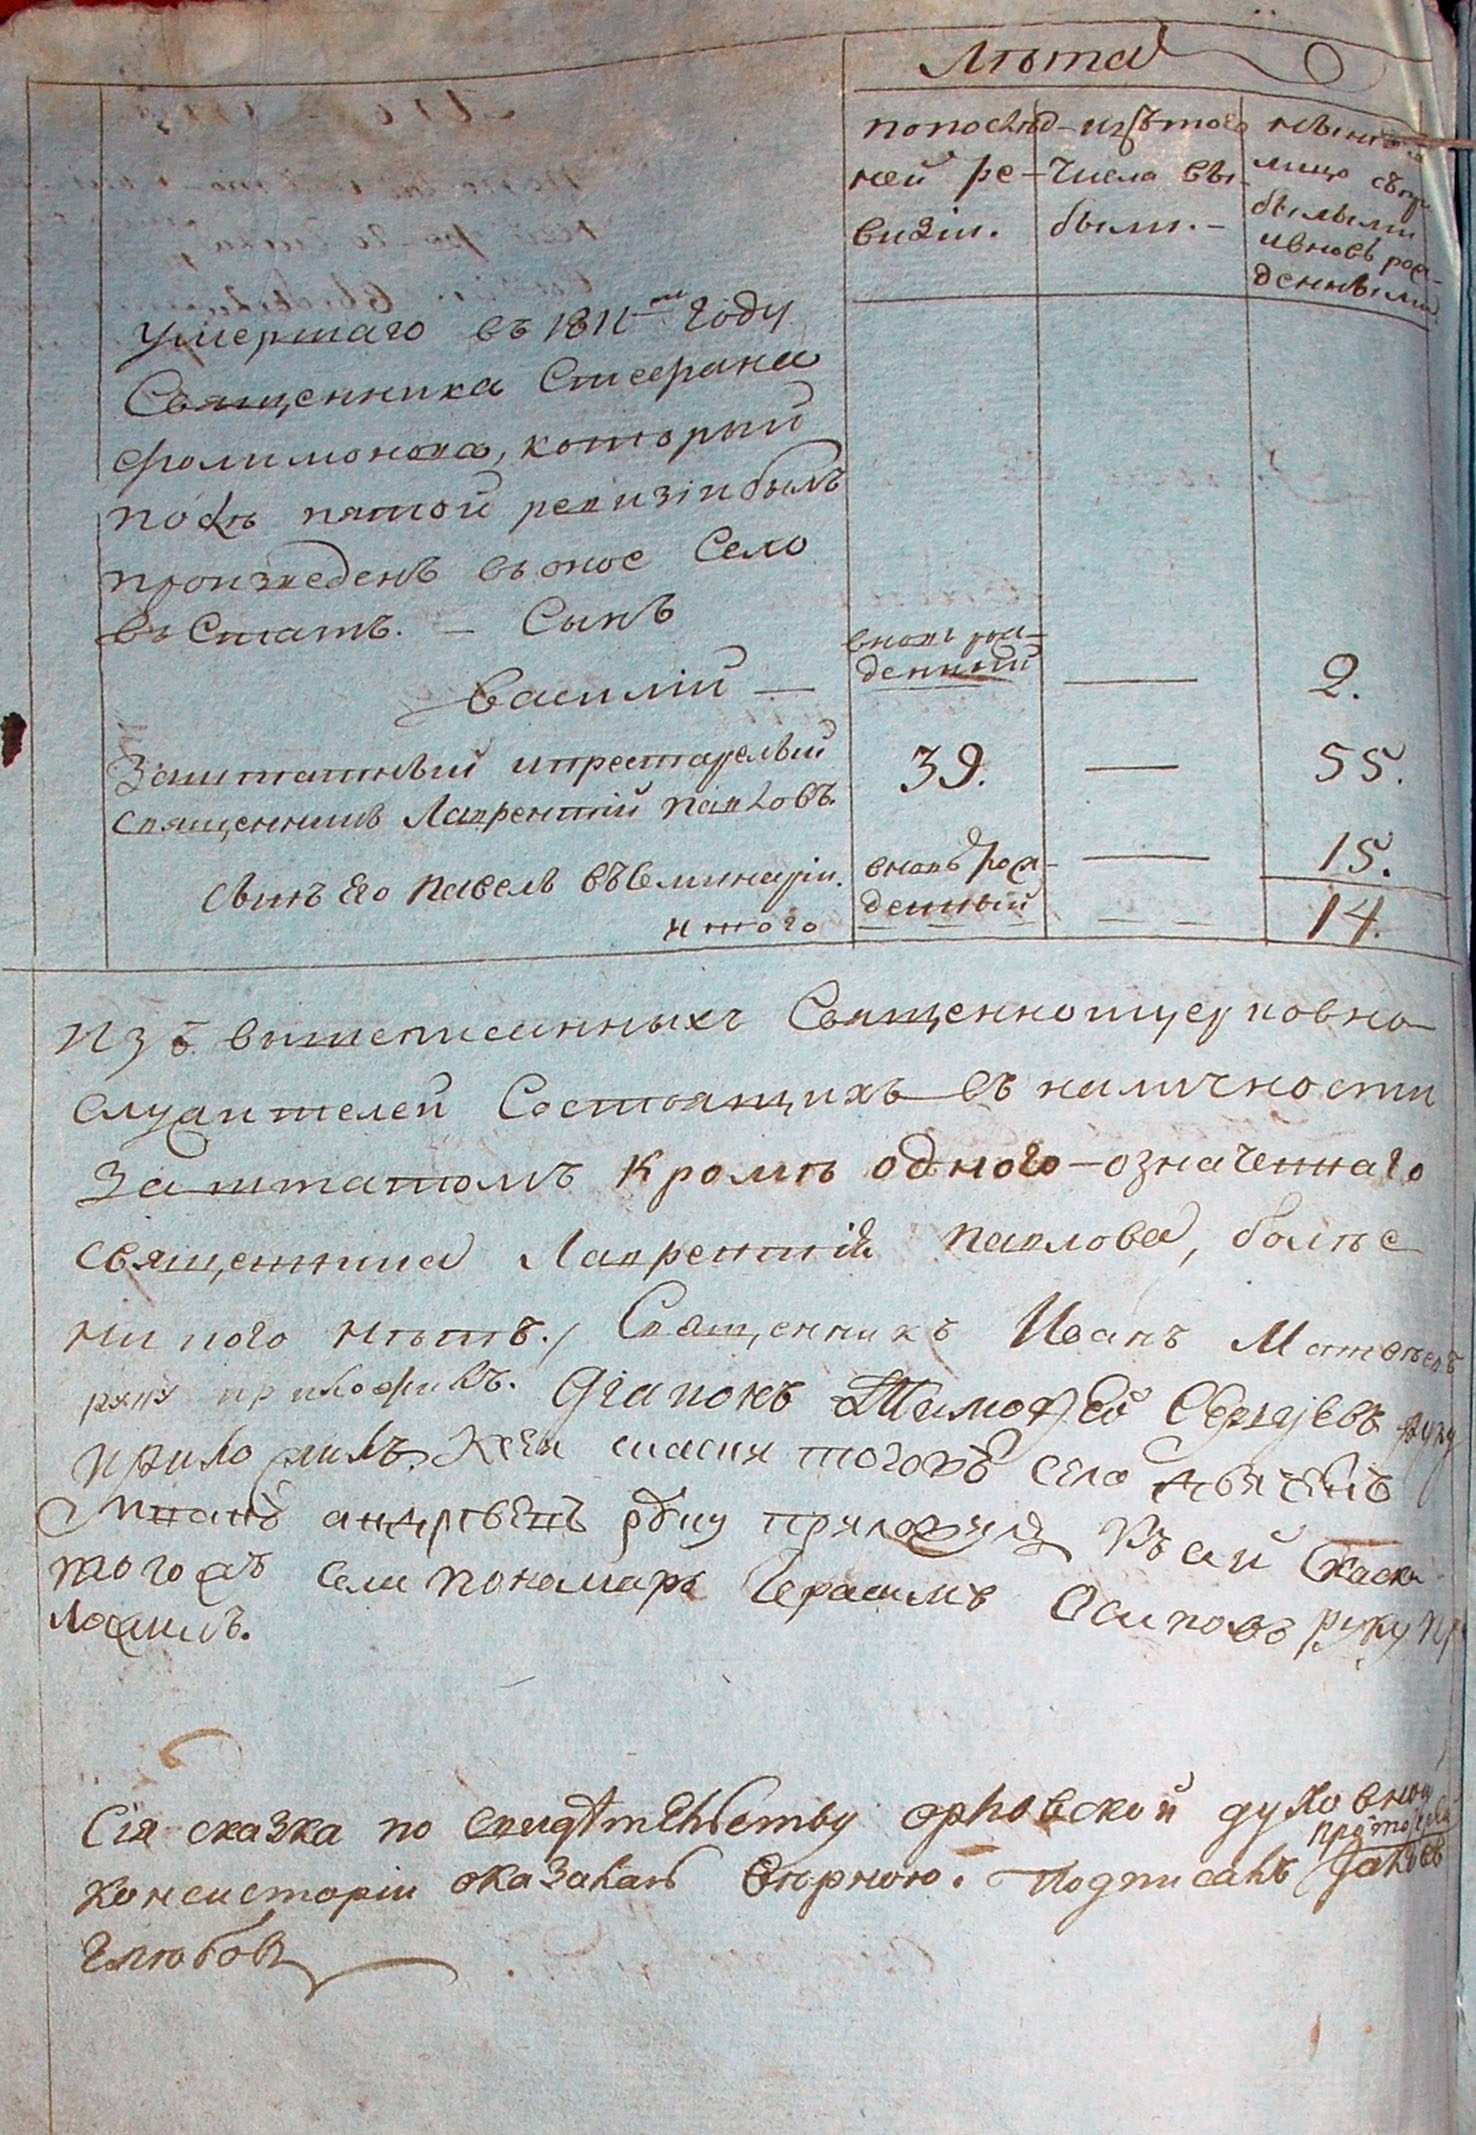 Лѣта
по послѣд-
ней ре-
визіи.
изъ того
числа вы-
были. -
нынѣ на
лицо съ при
былыми
и вновь рож-
денными
умершаго въ 1811 году
Священника Стефана
Филимонова, который
послѣ пятой ревизіи былъ
произведенъ въ оное Село
въ Статъ. - Сынъ
Василій —
вновь рож-
денный
—
2.
Заштатный и престарелый
священникъ Лаврентій Павловъ.
39.
—
55.
сынъ его Павелъ въ Семинаріи.
вновь рож-
денный
—
15.
итого
— —
14.
Изъ вышеписанныхъ Священноцерковно-
служителей Состоящихъ въ наличности
За штатомъ кромѣ одного означеннаго
священника Лаврентія Павлова, болѣе
никого нѣтъ./ Священникъ Иванъ Матвѣевъ
руку приложилъ. Діаконъ Тимофей Сергѣевъ руку
приложилъ. К сей скаски тогожъ села дьячекъ
Иванъ андрѣевъ руку приложилъ Къ сей скаски
тогожъ села пономарь Герасимъ Осиповъ руку при
ложилъ.
Сія сказка по свидѣтельству орловской духовной
консисторіи оказалась вѣрною. Подписалъ Протоіерей Іаковъ
Глюбовъ